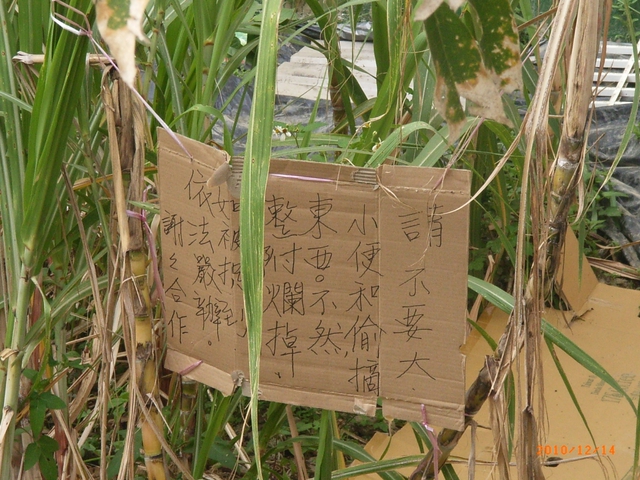 請不要大
小便和偷摘
東西。不然,
整付爛掉。
如被捉到
依法嚴辦。
謝々合作
2010/12/14